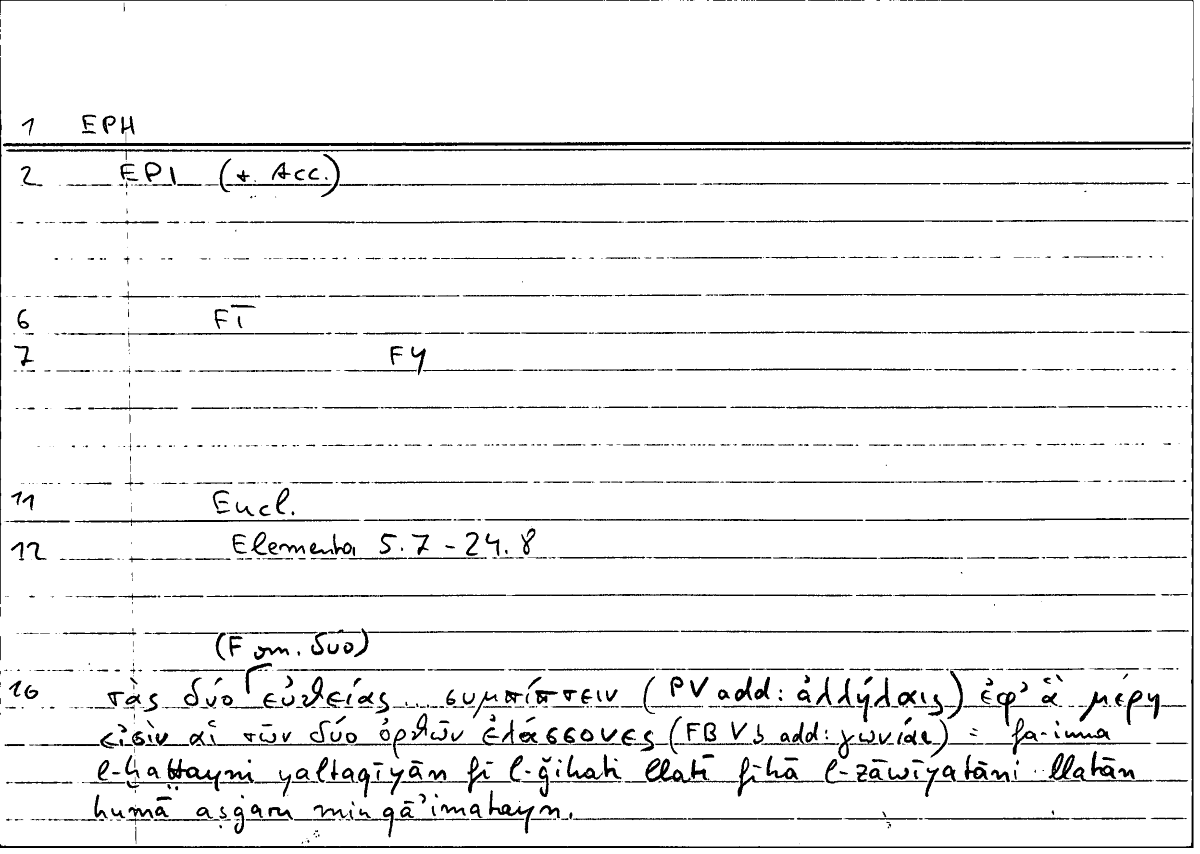 1 EPH
2 EPI (+ Acc.)
6 FĪ
7 FY
11 Eucl.
12 Elementa 5.7-24.8
(F om. δύο)
16 τὰς δύο εὐθείας... συμπίπτειν (PV add: ἀλλήλαις) ἐφ' ἃ μέρη
εἰσὶν αἱ τῶν δύο ὀρθῶν ἐλάσσονες (FB V b add: γωνίαι) = fa-inna
l-ḫaṭṭayni yaltaqīyān fī l-ǧihati llatī fīhā l-zāwīyatāni llatān
humā aṣġaru min qā'imatayn.